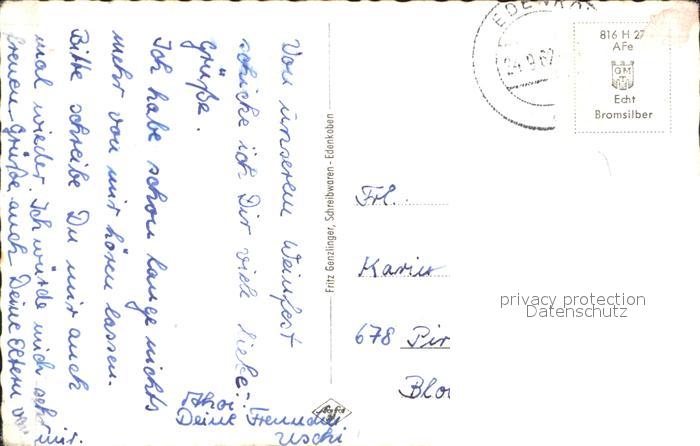 Von unserem Weinfest
schicke ich Dir viele liebe
Grüße.
Ich habe schon lange nichts
mehr von mir hören lassen.
Bitte schreibe Du mir auch
mal wieder. Ich würde mich sehr
freuen. Grüße auch Deine Eltern von
mir.
Ahoi!
Deine Freundin
Uschi
Fritz Genzlinger, Schreibwaren - Edenkoben
EDENK
24.9.67
816 H 27
AFe
GM
Echt
Bromsilber
Frl.
Karin
678 Pir
Blo
privacy protection
Datenschutz
Agfa